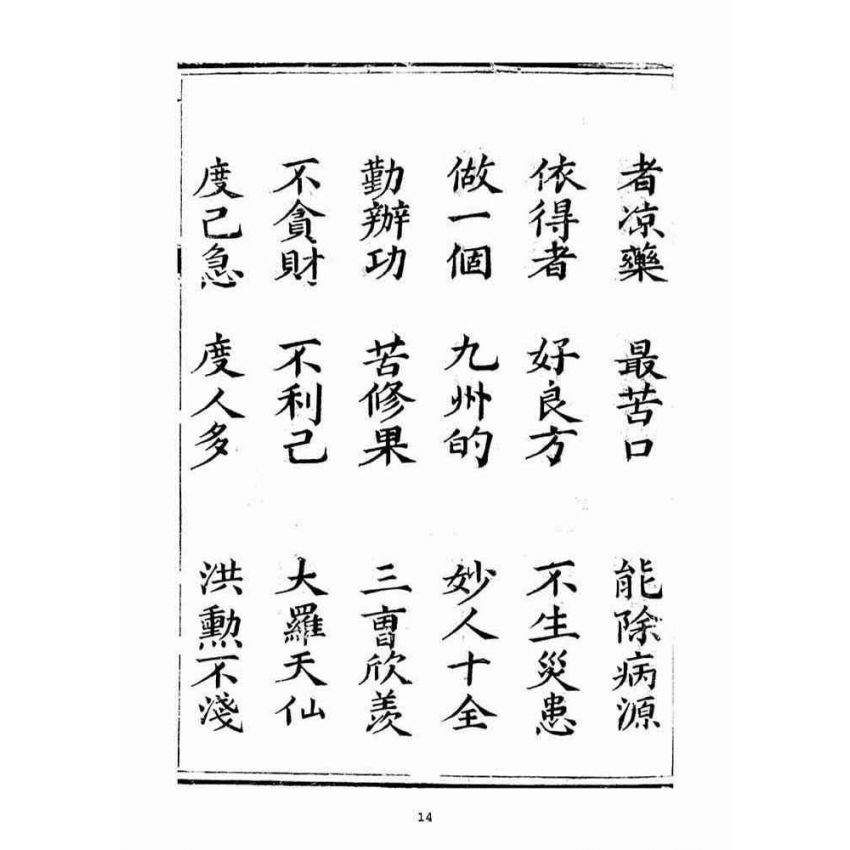 者凉藥 最苦口 能除病源
依得者 好良方 不生災患
做一個 九州的 妙人十全
勤辦功 苦修果 三曺欣羨
不貪財 不利己 大羅天仙
度己急 度人多 洪勳不淺
14